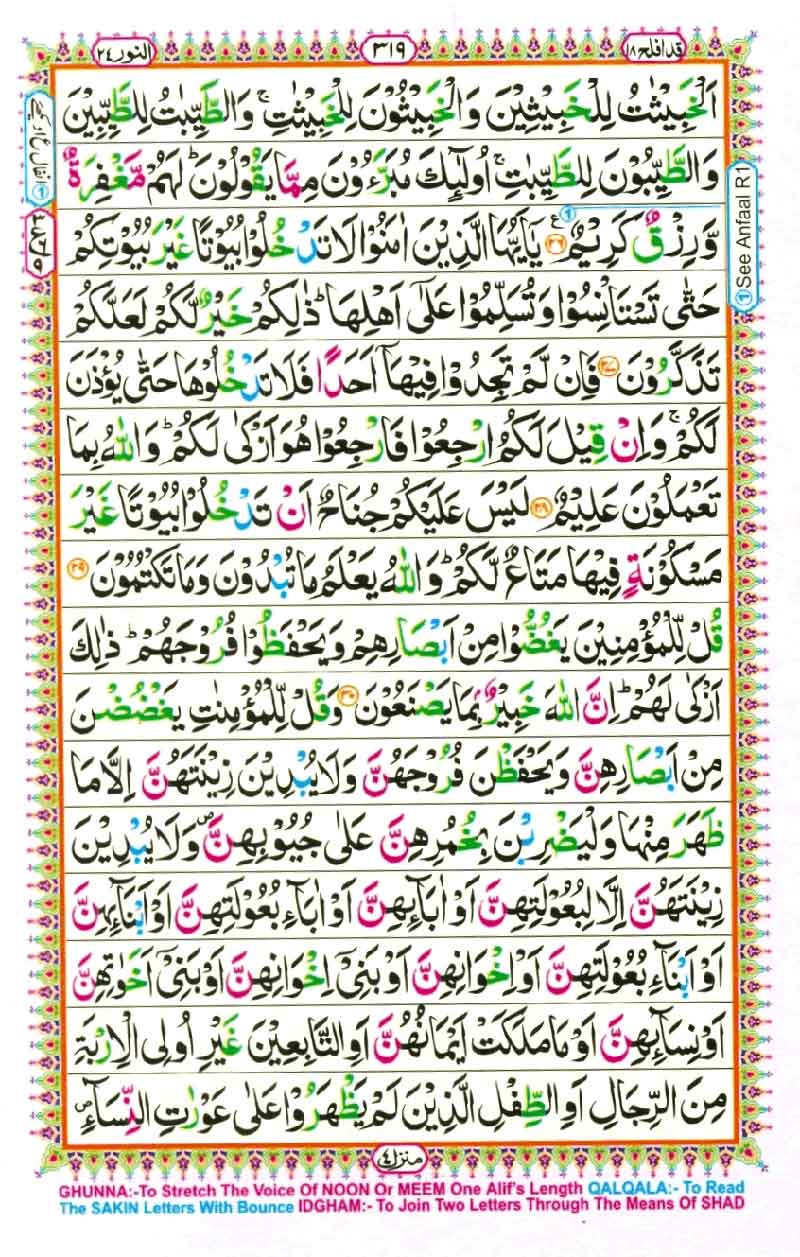 قد افلح ١٨
٣١٩
النور ٢٤
اَلْخَبِيْثٰتُ لِلْخَبِيْثِيْنَ وَالْخَبِيْثُوْنَ لِلْخَبِيْثٰتِ ۚ وَالطَّيِّبٰتُ لِلطَّيِّبِيْنَ
وَالطَّيِّبُوْنَ لِلطَّيِّبٰتِ ۚ اُولٰٓئِكَ مُبَرَّءُوْنَ مِمَّا يَقُوْلُوْنَ ؕ لَهُمْ مَّغْفِرَةٌ
وَّرِزْقٌ كَرِيْمٌ ﴿٢٦﴾ يٰۤاَيُّهَا الَّذِيْنَ اٰمَنُوْا لَا تَدْخُلُوْا بُيُوْتًا غَيْرَ بُيُوْتِكُمْ
حَتّٰى تَسْتَاْنِسُوْا وَتُسَلِّمُوْا عَلٰۤى اَهْلِهَا ؕ ذٰلِكُمْ خَيْرٌ لَّكُمْ لَعَلَّكُمْ
تَذَكَّرُوْنَ ﴿٢٧﴾ فَاِنْ لَّمْ تَجِدُوْا فِيْهَاۤ اَحَدًا فَلَا تَدْخُلُوْهَا حَتّٰى يُؤْذَنَ
لَكُمْ ۚ وَاِنْ قِيْلَ لَكُمُ ارْجِعُوْا فَارْجِعُوْا هُوَ اَزْكٰى لَكُمْ ؕ وَاللّٰهُ بِمَا
تَعْمَلُوْنَ عَلِيْمٌ ﴿٢٨﴾ لَيْسَ عَلَيْكُمْ جُنَاحٌ اَنْ تَدْخُلُوْا بُيُوْتًا غَيْرَ
مَسْكُوْنَةٍ فِيْهَا مَتَاعٌ لَّكُمْ ؕ وَاللّٰهُ يَعْلَمُ مَا تُبْدُوْنَ وَمَا تَكْتُمُوْنَ ﴿٢٩﴾
قُلْ لِّلْمُؤْمِنِيْنَ يَغُضُّوْا مِنْ اَبْصَارِهِمْ وَيَحْفَظُوْا فُرُوْجَهُمْ ؕ ذٰلِكَ
اَزْكٰى لَهُمْ ؕ اِنَّ اللّٰهَ خَبِيْرٌۢ بِمَا يَصْنَعُوْنَ ﴿٣٠﴾ وَقُلْ لِّلْمُؤْمِنٰتِ يَغْضُضْنَ
مِنْ اَبْصَارِهِنَّ وَيَحْفَظْنَ فُرُوْجَهُنَّ وَلَا يُبْدِيْنَ زِيْنَتَهُنَّ اِلَّا مَا
ظَهَرَ مِنْهَا وَلْيَضْرِبْنَ بِخُمُرِهِنَّ عَلٰى جُيُوْبِهِنَّ ۪ وَلَا يُبْدِيْنَ
زِيْنَتَهُنَّ اِلَّا لِبُعُوْلَتِهِنَّ اَوْ اٰبَآئِهِنَّ اَوْ اٰبَآءِ بُعُوْلَتِهِنَّ اَوْ اَبْنَآئِهِنَّ
اَوْ اَبْنَآءِ بُعُوْلَتِهِنَّ اَوْ اِخْوَانِهِنَّ اَوْ بَنِيْۤ اِخْوَانِهِنَّ اَوْ بَنِيْۤ اَخَوٰتِهِنَّ
اَوْ نِسَآئِهِنَّ اَوْ مَا مَلَكَتْ اَيْمَانُهُنَّ اَوِ التّٰبِعِيْنَ غَيْرِ اُولِى الْاِرْبَةِ
مِنَ الرِّجَالِ اَوِ الطِّفْلِ الَّذِيْنَ لَمْ يَظْهَرُوْا عَلٰى عَوْرٰتِ النِّسَآءِ ۪
① See Anfaal R1
منزل ٤
GHUNNA:-To Stretch The Voice Of NOON Or MEEM One Alif's Length QALQALA:- To Read
The SAKIN Letters With Bounce IDGHAM:- To Join Two Letters Through The Means Of SHAD